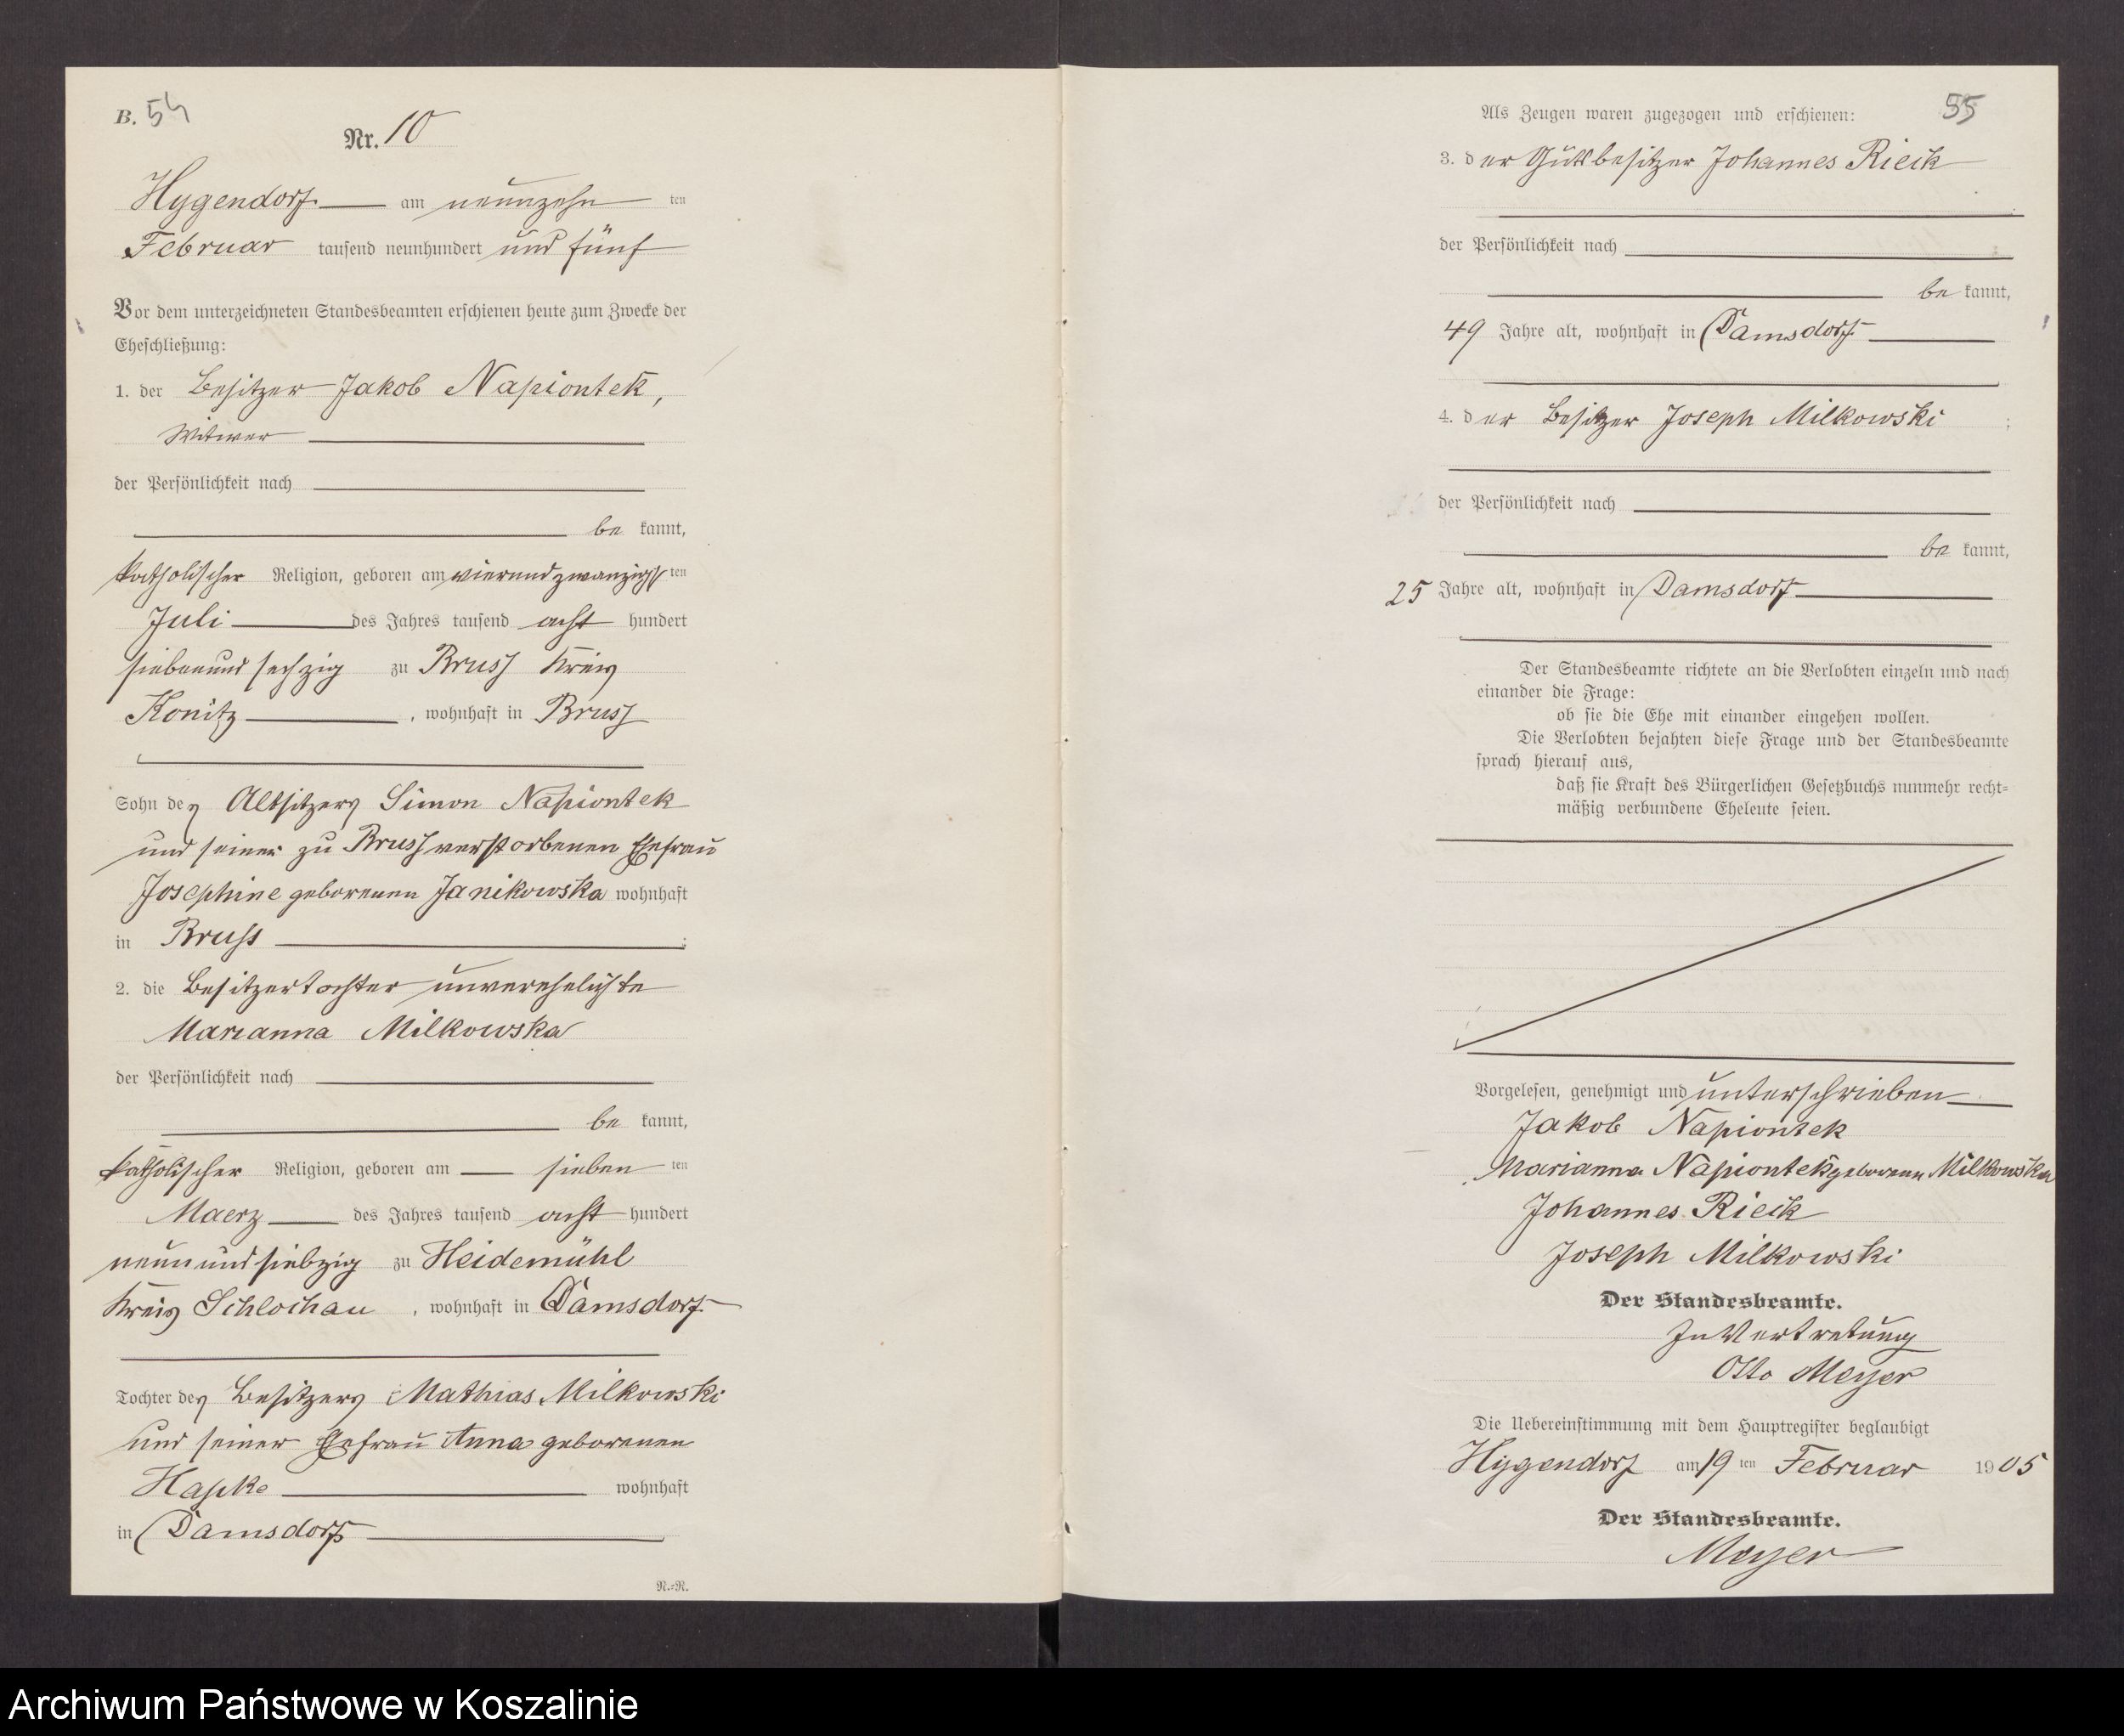 B. 54
Nr. 10
Hygendorf am neunzehn ten
Februar tausend neunhundert und fünf
Vor dem unterzeichneten Standesbeamten erschienen heute zum Zwecke der
Eheschließung:
1. der Besitzer Jakob Napiontek,
Witwer
der Persönlichkeit nach
be kannt,
katholischer Religion, geboren am vierundzwanzigsten
Juli des Jahres tausend acht hundert
siebenundsechzig zu Bruss Kreis
Konitz, wohnhaft in Bruss
Sohn des Altsitzers Simon Napiontek
und seiner zu Bruss verstorbenen Ehefrau
Josephine geborenen Janikowska wohnhaft
in Bruss ;
2. die Besitzertochter unverehelichte
Marianna Milkowska
der Persönlichkeit nach
be kannt,
katholischer Religion, geboren am sieben ten
Maerz des Jahres tausend acht hundert
neunundsiebzig zu Heidemühl
Kreis Schlochau, wohnhaft in Damsdorf
Tochter des Besitzers Mathias Milkowski
und seiner Ehefrau Anna geborenen
Hapke wohnhaft
in Damsdorf
N.=R.
55
Als Zeugen waren zugezogen und erschienen:
3. der Gutsbesitzer Johannes Rieck
der Persönlichkeit nach
be kannt,
49 Jahre alt, wohnhaft in Damsdorf
4. der Besitzer Joseph Milkowski
der Persönlichkeit nach
be kannt,
25 Jahre alt, wohnhaft in Damsdorf
Der Standesbeamte richtete an die Verlobten einzeln und nach
einander die Frage:
ob sie die Ehe mit einander eingehen wollen.
Die Verlobten bejahten diese Frage und der Standesbeamte
sprach hierauf aus,
daß sie Kraft des Bürgerlichen Gesetzbuchs nunmehr recht=
mäßig verbundene Eheleute seien.
Vorgelesen, genehmigt und unterschrieben
Jakob Napiontek
Marianna Napiontek geborene Milkowska
Johannes Rieck
Joseph Milkowski
Der Standesbeamte.
In Vertretung
Otto Meyer
Die Uebereinstimmung mit dem Hauptregister beglaubigt
Hygendorf am 19 ten Februar 1905
Der Standesbeamte.
Meyer
Archiwum Państwowe w Koszalinie